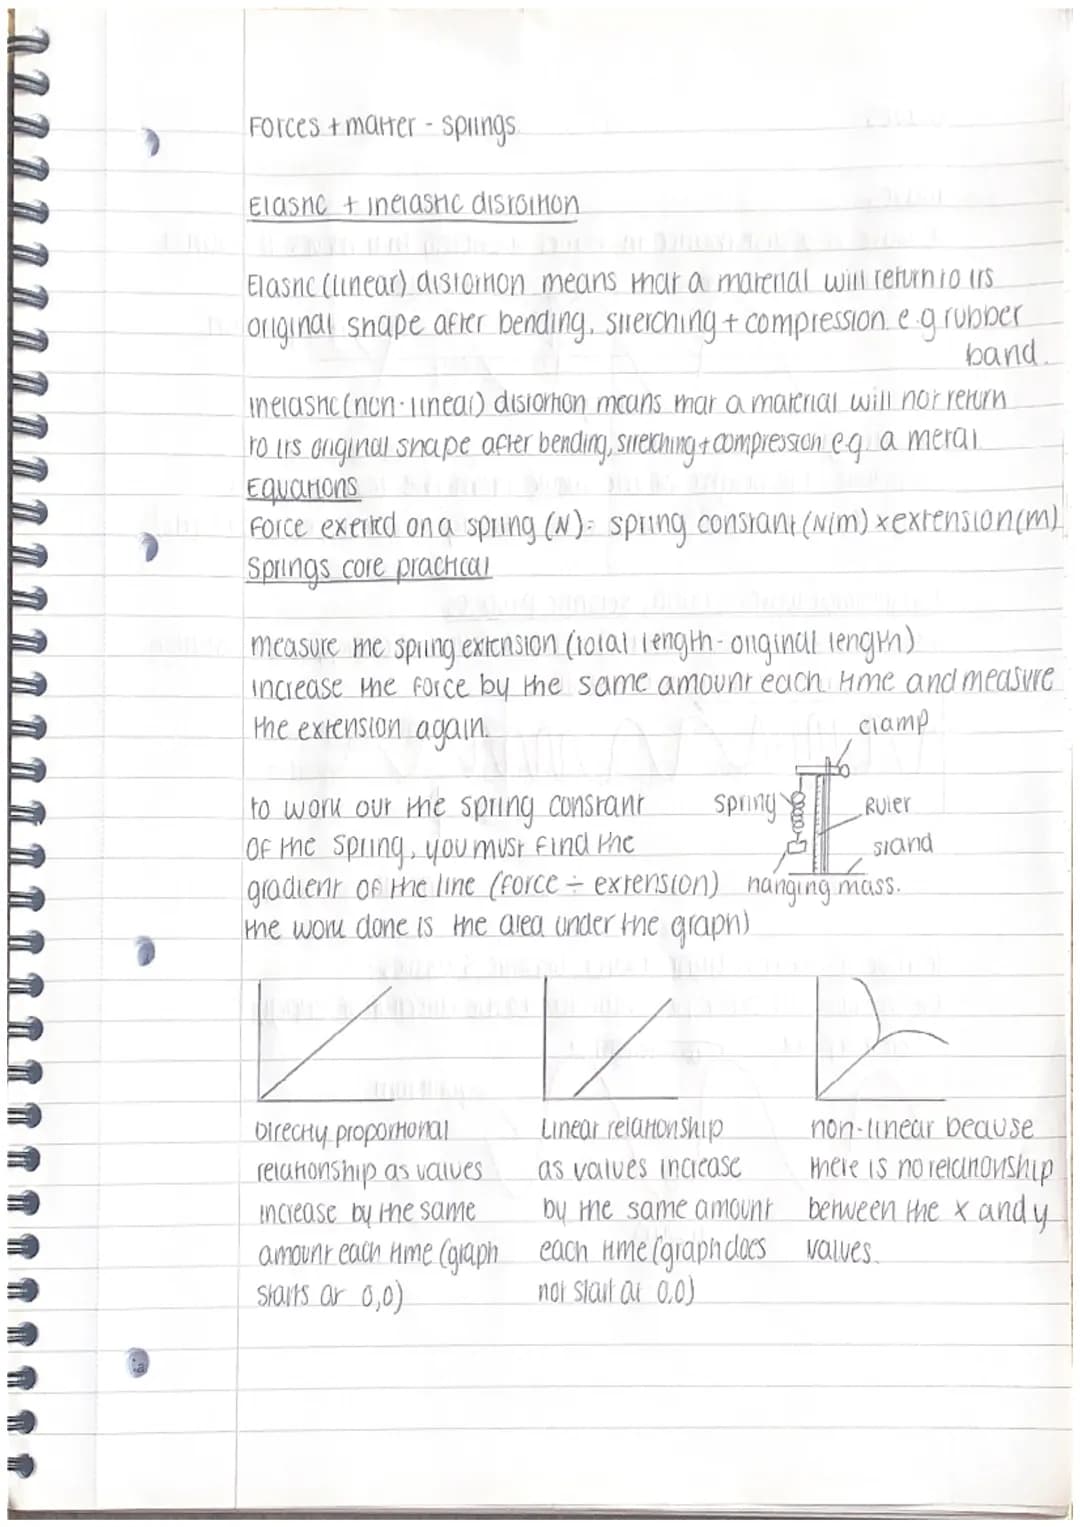 Forces + matter - springs
Elastic + inelastic distortion
Elastic (linear) distortion means that a material will return to its
original shape after bending, stretching + compression e.g rubber
band.
inelastic (non-linear) distortion means that a material will not return
to its original shape after bending, stretching + compression e.g. a metal
Equations
Force exerted on a spring (N) = spring constant (N/m) x extension (m)
Springs core practical
measure the spring extension (total length - original length)
increase the force by the same amount each time and measure
the extension again.
clamp
to work out the spring constant
spring
Ruler
of the spring, you must find the
stand
gradient of the line (force ÷ extension)
hanging mass.
the work done is the area under the graph)
Directly proportional
relationship as values
increase by the same
amount each time (graph
starts at 0,0)
Linear relationship
as values increase
by the same amount
each time (graph does
not start at 0,0)
non-linear beause
there is no relationship
between the x and y
values.